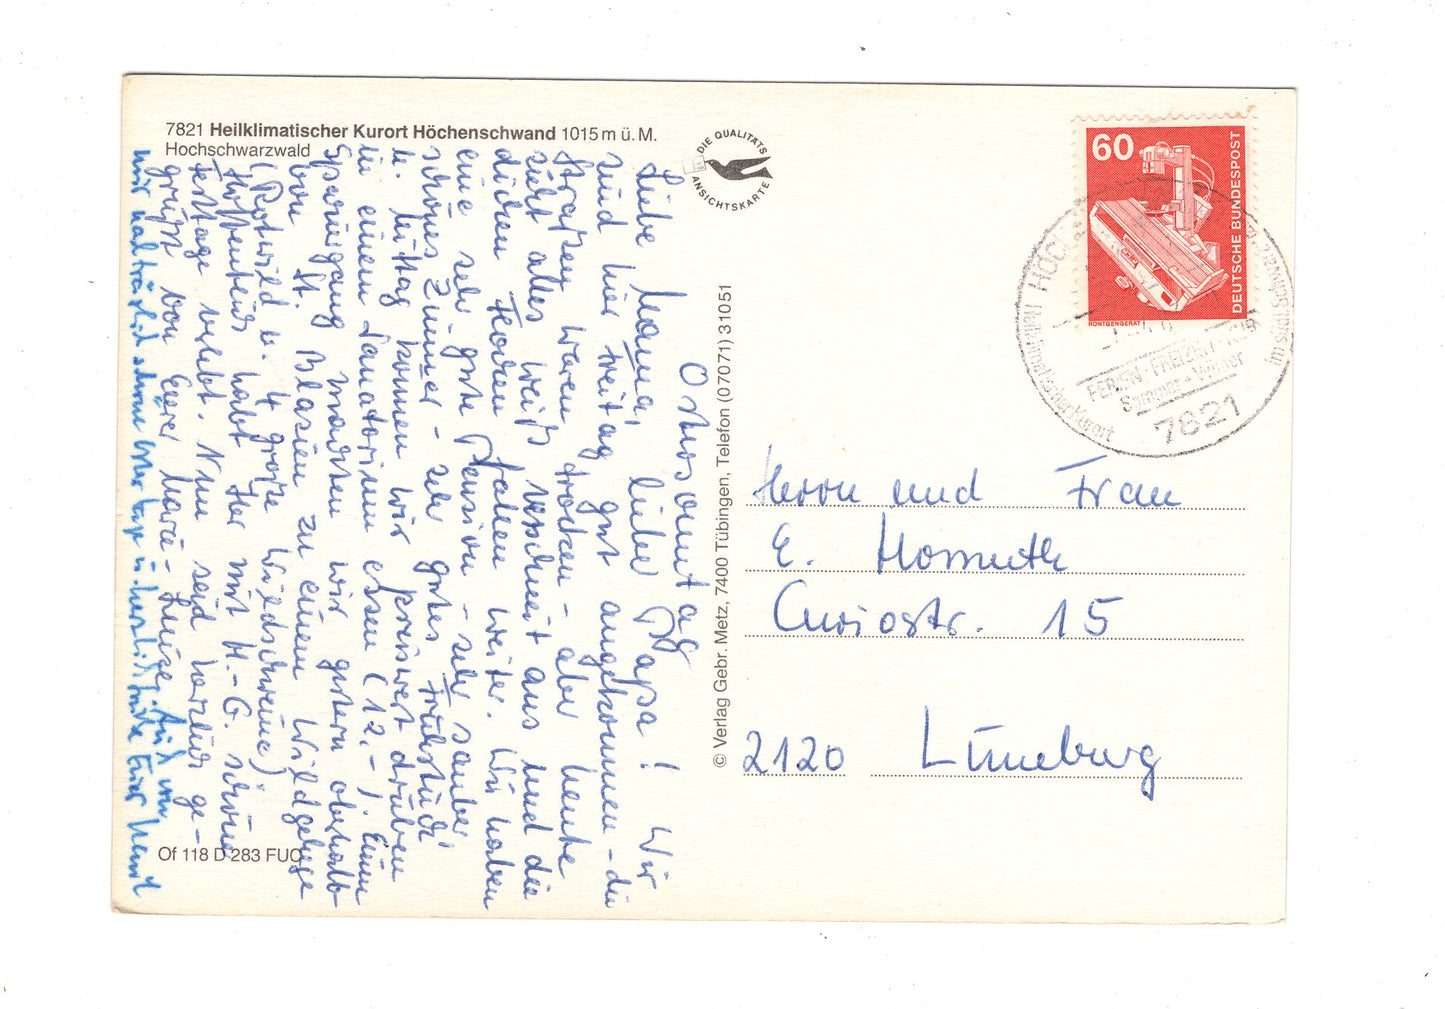 7821 Heilklimatischer Kurort Höchenschwand 1015 m ü. M.
Hochschwarzwald
DIE QUALITÄTS
ANSICHTSKARTE
60
DEUTSCHE BUNDESPOST
RÖNTGENGERÄT
Heilklimatischer Kurort
FERIEN · FREIZEIT
Sommer + Winter
7821
Ostersonntag
Liebe Mama, lieber Papa! Wir
sind hier Freitag gut angekommen - die
Straßen waren trocken - aber heute
sieht alles weiß verschneit aus und die
dicken Flocken fallen weiter. Wir haben
eine sehr gute Pension - sehr sauber
schönes Zimmer - sehr gutes Frühstück
u. Mittag können wir preiswert drüben
in einem Sanatorium essen (12,-). Einen
Spaziergang machten wir gestern oberhalb
von St. Blasien zu einem Wildgehege
(Rotwild u. 4 große Wildschweine)
Hoffentlich habt Ihr mit H.-G. schöne
Festtage verlebt. Nun seid herzlich ge-
grüßt von Eurer Marie-Luise. Auch von
mir nachträglich schöne Ostertage u. herzliche Grüße Euer
© Verlag Gebr. Metz, 7400 Tübingen, Telefon (07071) 31051
Herrn und Frau
E. Homuth
Curiostr. 15
2120 Lüneburg
Of 118 D 283 FUO